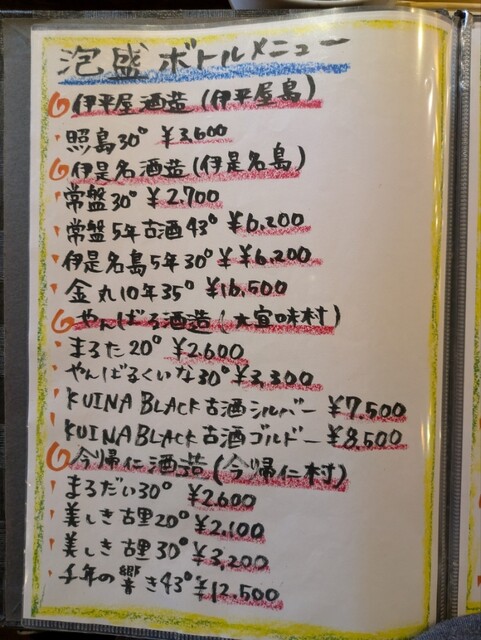 泡盛ボトルメニュー
伊平屋酒造(伊平屋島)
・照島30° ¥3,600
伊是名酒造(伊是名島)
・常盤30° ¥2,700
・常盤5年古酒43° ¥6,200
・伊是名島5年30° ¥¥6,200
・金丸10年35° ¥16,500
やんばる酒造(大宜味村)
・まるた20° ¥2,600
・やんばるくいな30° ¥3,300
・KUINA BLACK古酒シルバー ¥7,500
・KUINA BLACK古酒ゴルドー ¥8,500
今帰仁酒造(今帰仁村)
・まるだい30° ¥2,600
・美しき古里20° ¥2,100
・美しき古里30° ¥3,200
・千年の響き43° ¥12,500